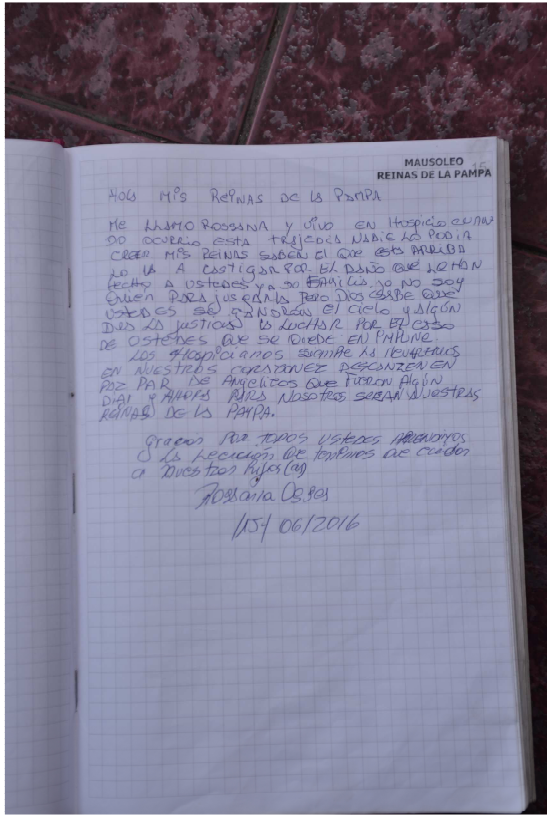 MAUSOLEO
REINAS DE LA PAMPA
15
HOLA MIS REINAS DE LA PAMPA
ME LLAMO ROSSANA Y VIVO EN HOSPICIO CUAN
DO OCURRIO ESTA TRAJEDIA NADIE LO PODIA
CREER MIS REINAS SABEN EL QUE ESTA ARRIBA
LO VA A CASTIGAR POR EL DAÑO QUE LE HAN
HECHO A USTEDES YA SU FAMILIA YO NO SOY
QUIEN PARA JUSGARLA PERO DIOS SABE QUE
USTEDES SE GANARON EL CIELO Y ALGÚN
DIA LA JUSTICIA VA LUCHAR POR EL CASO
DE USTEDES QUE SE QUEDE EN IMPUNE
LOS HOSPICIANOS SIEMPRE LA LLEVAREMOS
EN NUESTROS CORAZONEZ DESCANZEN EN
PAZ PAR DE ANGELITOS QUE FUERON ALGÚN
DIA Y AHORA PARA NOSOTROS SERAN NUESTRAS
REINAS DE LA PAMPA.
gracias POR TODOS USTEDES APRENDIMOS
LA LECCIÓN DE TENEMOS QUE cuidar
a nuestros hijos(as)
Rossana
/15/06/2016